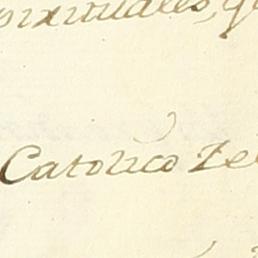 pirituales, q
Catolico Ze